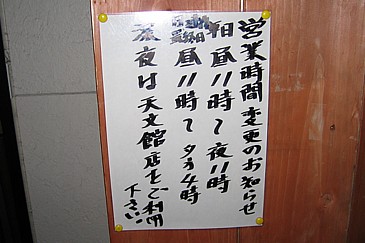 営業時間変更のお知らせ
平日昼11時〜夜11時
昼11時〜夕方4時
深夜は天文館店をご利用
下さい